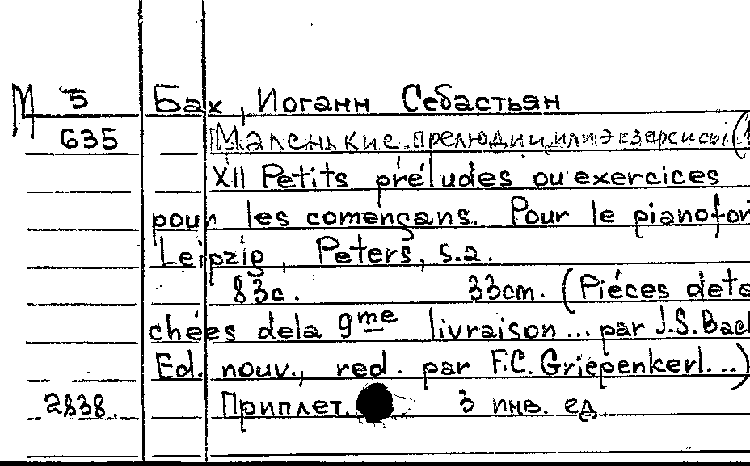 М Б Бах, Иоганн Себастьян
635 [Маленькие прелюдии, или экзерсисы (
XII Petits préludes ou exercices
pour les començans. Pour le pianofor
Leipzig, Peters, s.a.
83с. 33cm. (Piéces deta
chées dela 9me livraison... par J.S.Bac
Ed. nouv., red. par F.C. Griepenkerl...)
2838. Приплет. 3 инв. ед.